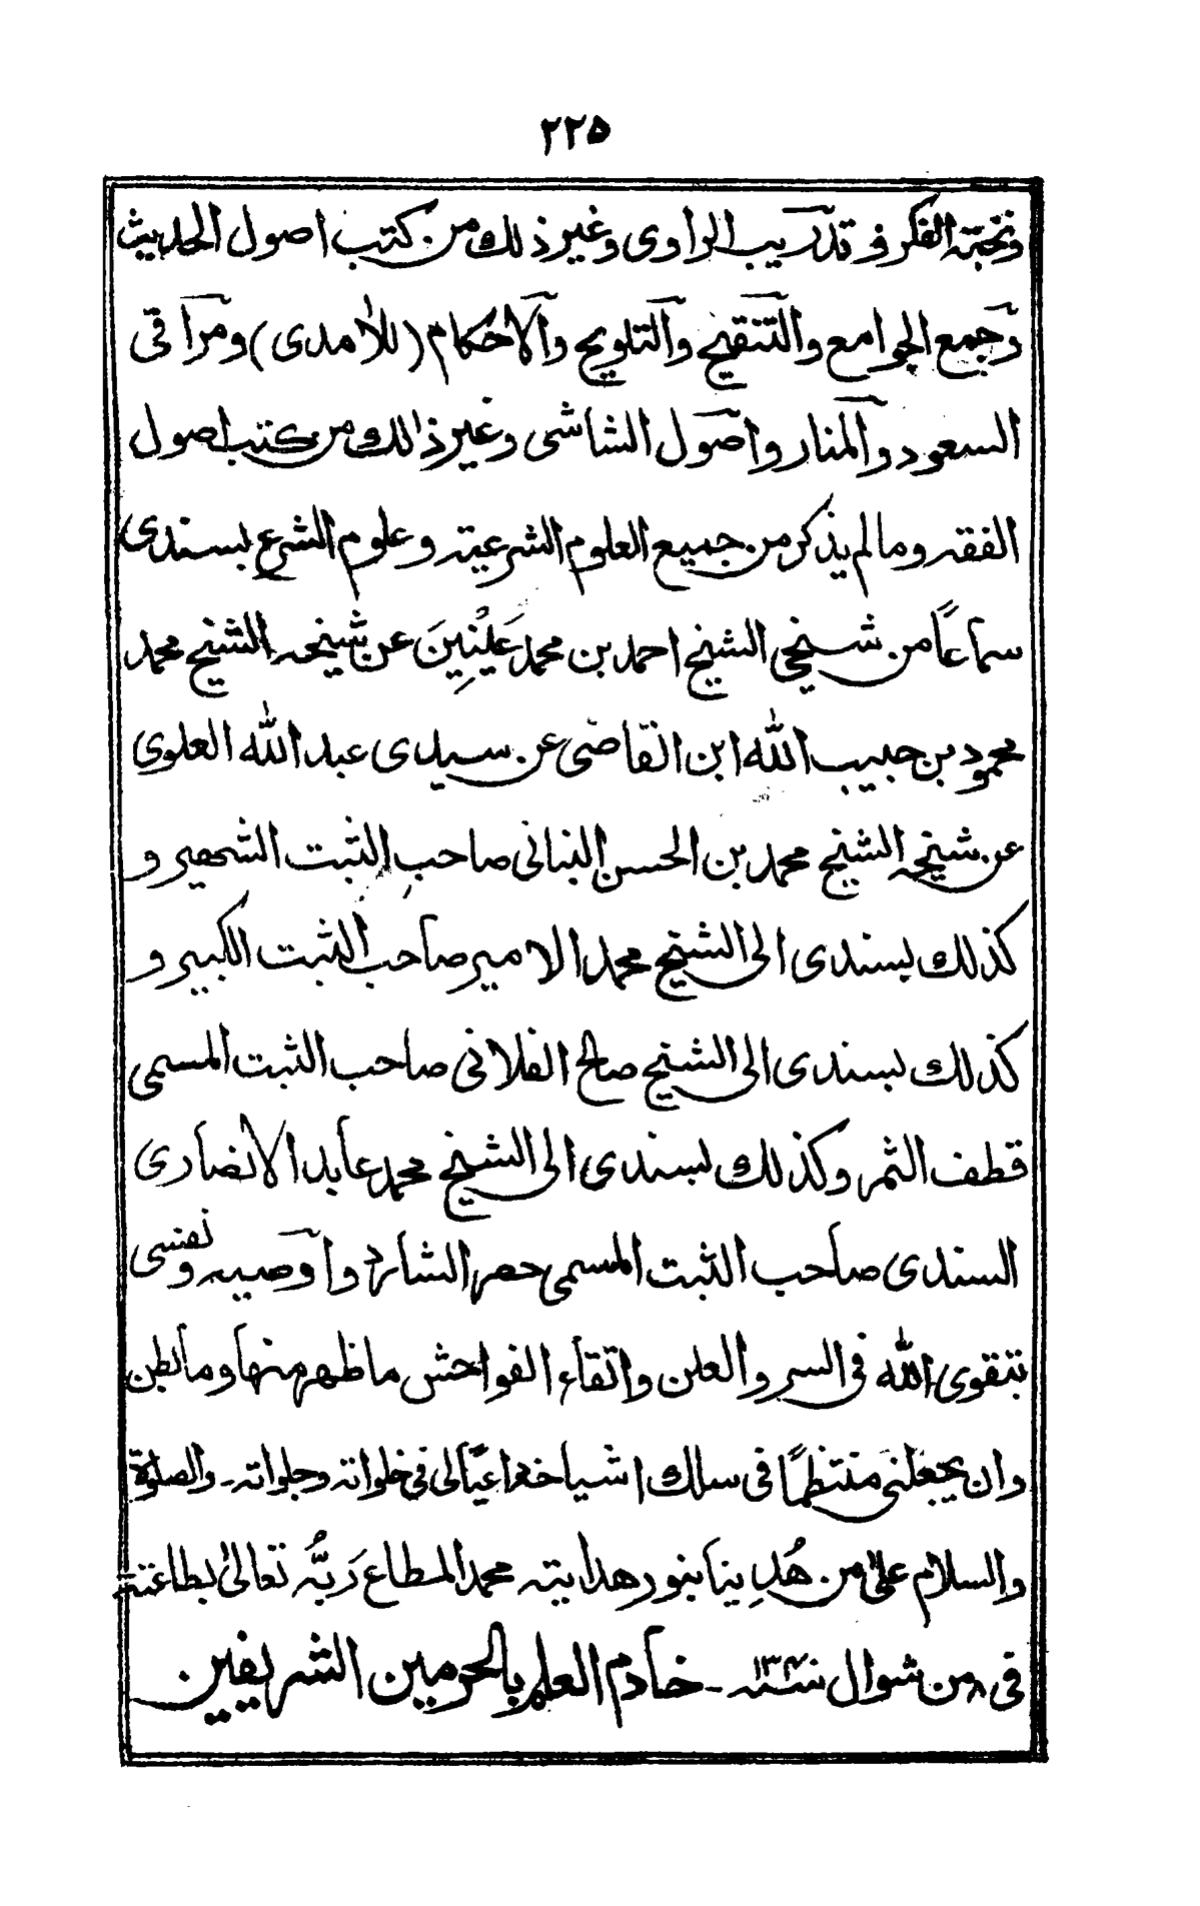 ٢٢٥
ونخبتہ الفکر و تدریب الراوی وغیر ذلك من کتب اصول الحدیث
وجمیع الجوامع والتنقیح والتلویح والاحکام (للاٰمدی) ومراقی
السعود والمنار واصول الشاشی وغیر ذالك من کتب اصول
الفقہ وما لم یذکر من جمیع العلوم الشرعیتہ وعلوم الشرع بسندی
سماعاً من شیخی الشیخ احمد بن محمد عَیْنِینَ عن شیخہ الشیخ محمد
محمود بن حبیب اللّٰہ ابن القاضی عن سیدی عبد اللّٰہ العلوی
عن شیخہ الشیخ محمد بن الحسن البنانی صاحب الثبت الشھیر و
کذلك بسندی الی الشیخ محمد الامیر صاحب الثبت الکبیر و
کذلك بسندی الی الشیخ صالح الفلانی صاحب الثبت المسمی
قطف الثمر وکذلك بسندی الی الشیخ محمد عابد الانصاری
السندی صاحب الثبت المسمی حصر الشارد واوصیہ ونفسی
بتقوی اللّٰہ فی السر والعلن واتقاء الفواحش ما ظھر منھا وما بطن
وان یجعلنی منتظماً فی سلك اشیاخہ داعیاً لی فی خلواتہ وجلواتہ۔ والصلوٰة
والسلام علیٰ من هُدِینا بنور ھدایتہ محمد المطاع رَبُّہ تعالیٰ بطاعتہ
فی ٨ من شوال سنہ ١٣٤٠۔ خادم العلم بالحرمین الشریفین۔